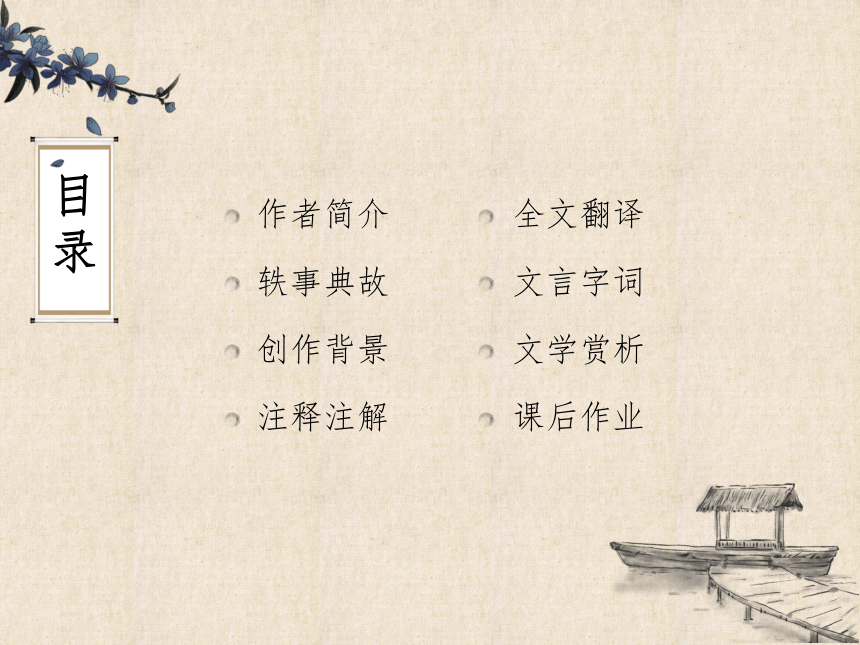 目录
作者简介
轶事典故
创作背景
注释注解
全文翻译
文言字词
文学赏析
课后作业